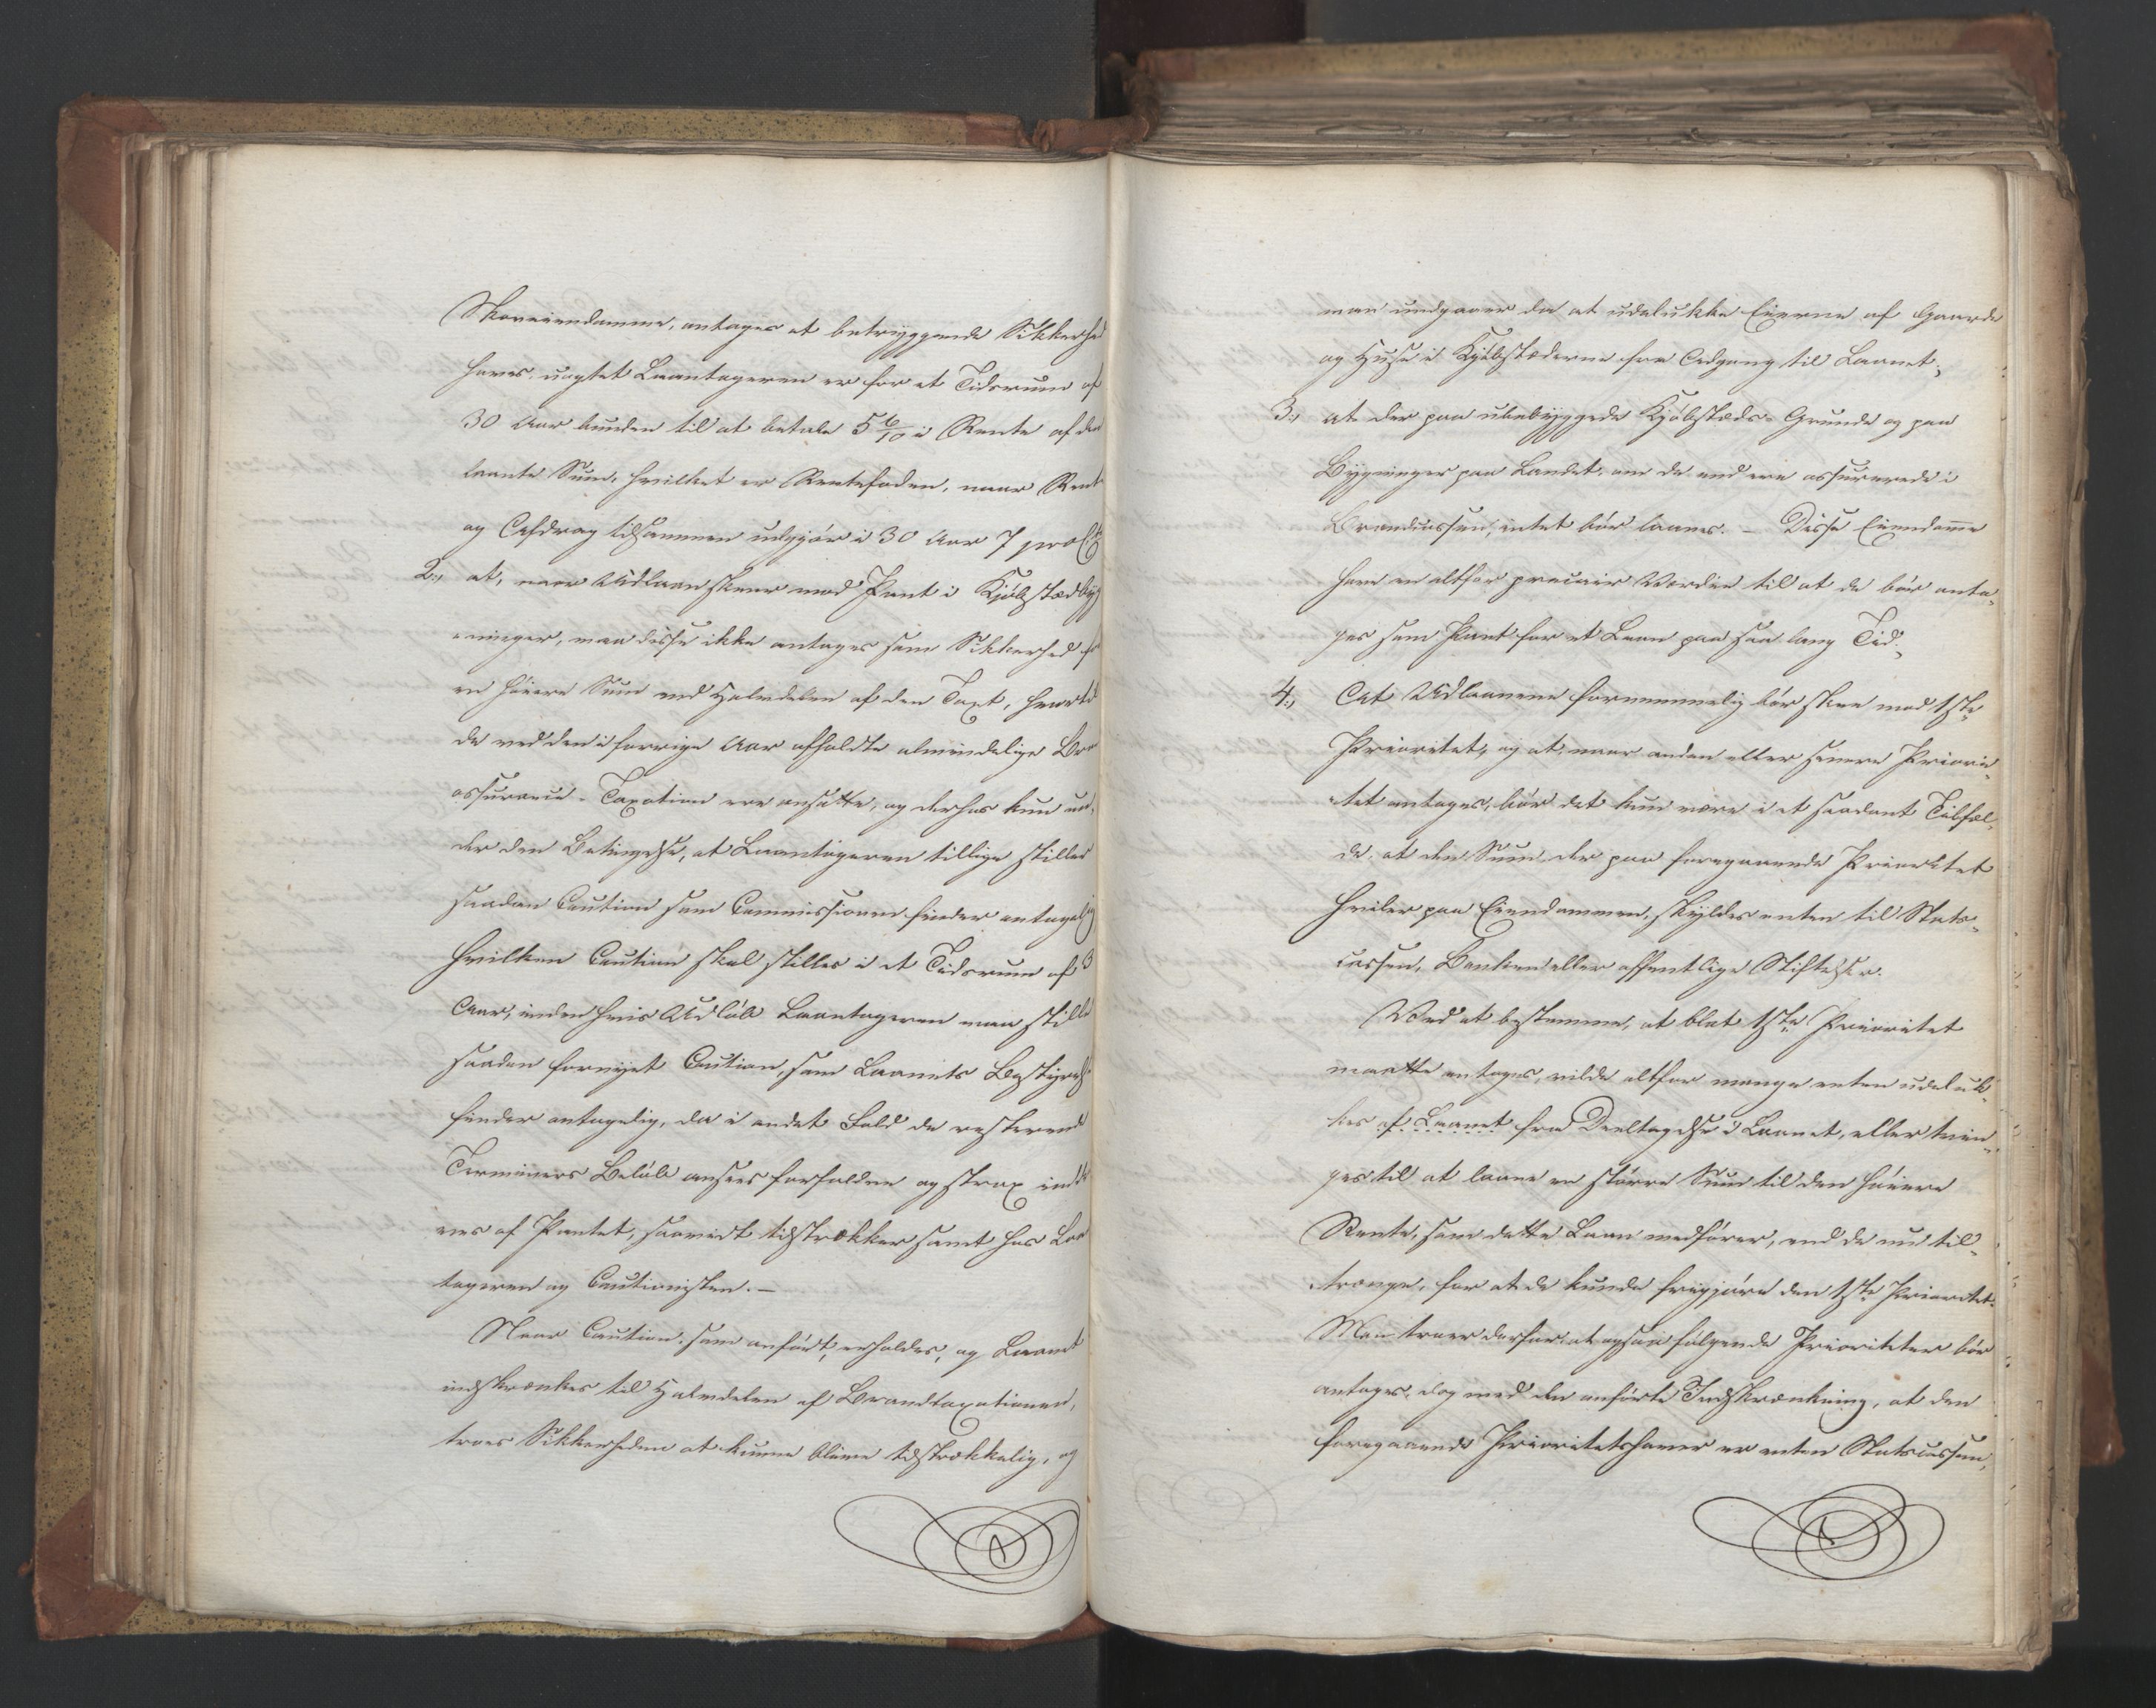 Skoveiendomme, antages at betryggende Sikkerhed
haves, uagtet Laantageren er for et Tidsrum af
30 Aar bunden til at betale 5 6/10 i Rente af den
laante Sum, hvilket er Rentefoden, naar Rent
og Afdrag tilsammen udgjør i 30 Aar 7 proCt
2., at, naar Udlaan skeer mod Pant i Kjøbstædbyg
ninger, maa disse ikke antages som Sikkerhed for
en høiere Sum end Halvdelen af den Taxt, hvortil
de ved den i forrige Aar afholdte almindelige Bran
assurance-Taxation ere ansatte, og derhos kun un-
der den Betingelse, at Laantageren tillige stiller
saadan Caution som Commissionen finder antagelig
hvilken Caution skal stilles i et Tidsrum af 3
Aar, inden hvis Udløb Laantageren maa stille
saadan fornyet Caution, som Laanets Bestyrelse
finder antagelig, da i andet Fald de resterende
Terminers Beløb ansees forfaldne og strax inddri
ves af Pantet, saavidt tilstrækker samt hos Laan
tageren og Cautionisten.-
Naar Caution, som anført, erholdes, og Laanet
indskrænkes til Halvdelen af Brandtaxationen,
troes Sikkerheden at kunne blive tilstrækkelig, og
man undgaaer da at udelukke Eierne af Gaarde
og Huse i Kjøbstæderne fra Adgang til Laanet;
3., at der paa ubebyggede Kjøbstæds-Grunde og paa
Bygninger paa Landet, om de end ere assurerede i
Brandcassen, intet bør laanes. - Disse Eiendomme
have en altfor precair Værdie til at de bør anta-
ges som Pant for et Laan paa saa lang Tid;
4., At Udlaanene fornemmelig bør skee mod 1ste
Prioritet, og at, naar anden eller senere Priori-
tet antages, bør det kun være i et saadant Tilfæl-
de, at den Sum, der paa foregaaende Prioritet
hviler paa Eiendommen, skyldes enten til Stats-
cassen, Banken eller offentlige Stiftelser.
Ved at bestemme, at blot 1ste Prioritet
maatte antages, vilde altfor mange enten udeluk-
kes af Laanet fra Deeltagelse i Laanet, eller tvin-
ges til at laane en større Sum til den høiere
Rente, som dette Laan medfører, end de nu til-
trænge, for at de kunde frigjøre den 1ste Prioritet.
Man troer derfor, at ogsaa følgende Prioriteter bør
antages, dog med den anførte Indskrænkning, at den
foregaaende Prioritetshaver er enten Statscassen,